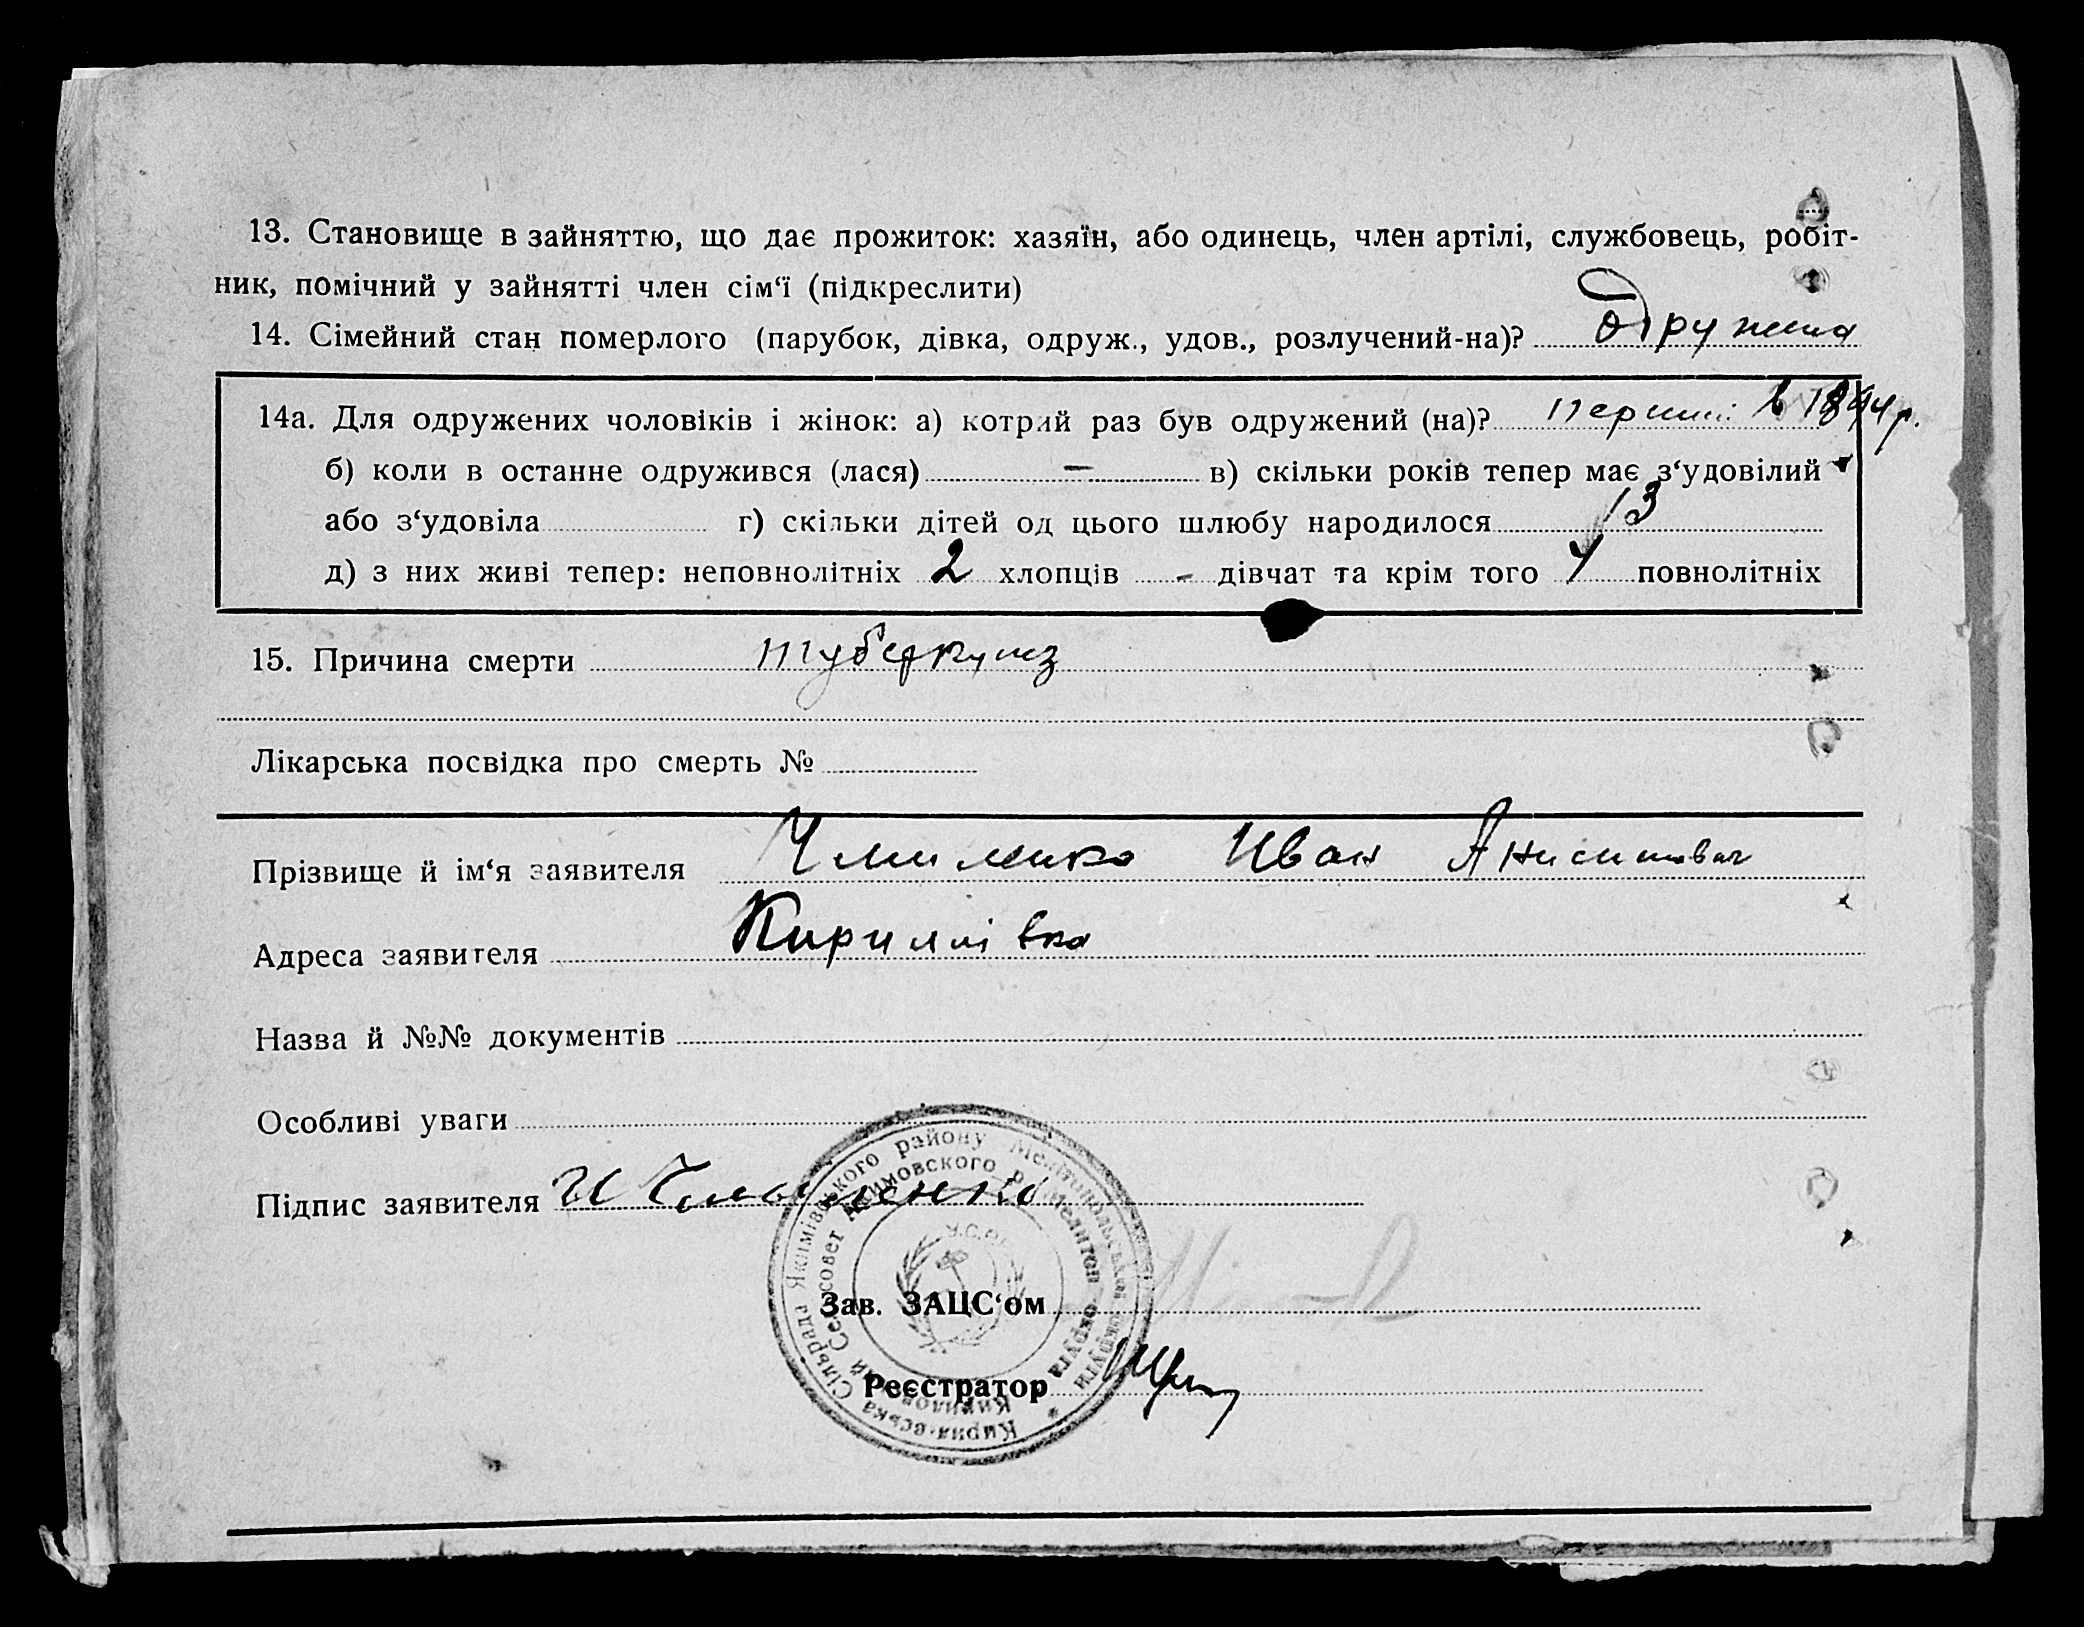 13. Становище в зайняттю, що дає прожиток: хазяїн, або одинець, член артілі, службовець, робіт-
ник, помічний у зайнятті член сім‘ї (підкреслити)
14. Сімейний стан померлого (парубок, дівка, одруж., удов., розлучений-на)? Одружена
14а. Для одружених чоловіків і жінок: а) котрий раз був одружений (на)? перший в
б) коли в останне одружився (лася) – в) скільки років тепер має з‘удовілий
або з‘удовіла г) скільки дітей од цього шлюбу народилося 13
д) з них живі тепер: неповнолітніх 2 хлопців - дівчат та крім того 4 повнолітніх
15. Причина смерти туберкульоз
Лікарська посвідка про смерть №
Прізвище й ім‘я заявителя Иван
Адреса заявителя Кириллівка
Назва й №№ документів
Особливі уваги
Підпис заявителя И
Зав. ЗАЦС‘ом
Реєстратор
Сільрада Якимівського району Мелітопольської округи Кирил-вська
Сельсовет Акимовского р. Мелитоп округа
У.С.Р.Р.